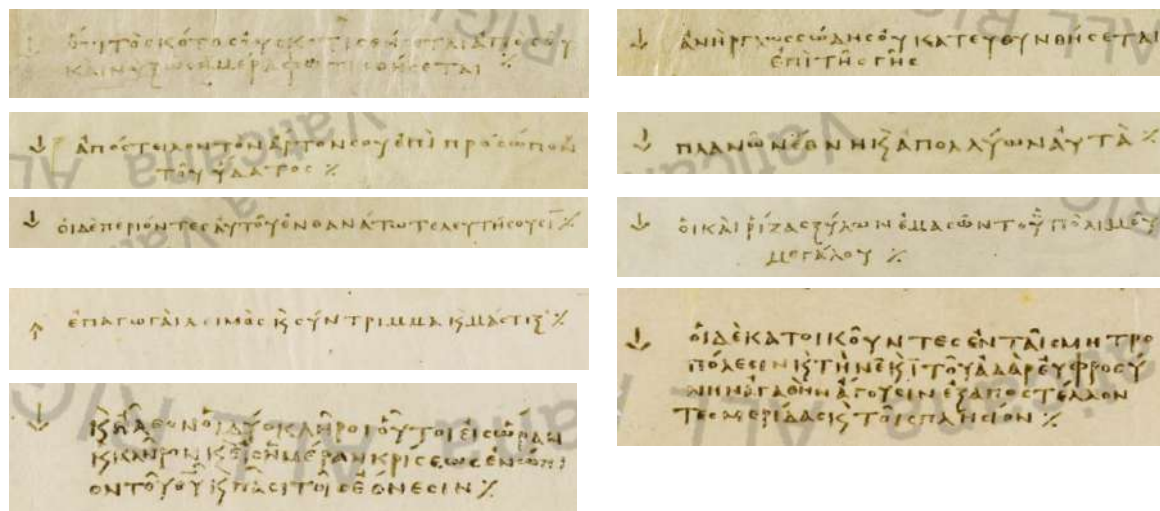 ὅτι τὸ σκότος οὐ σκοτισθήσεται ἀπὸ σοῦ
καὶ νὺξ ὡς ἡμέρα φωτισθήσεται ⁒
↓ ἀπόστειλον τὸν ἄρτον σου ἐπὶ πρόσωπον
τοῦ ὕδατος ⁒
↓ οἱ δὲ περιόντες αὐτοῦ ἐν θανάτω τελευτήσουσι ⁒
↑ ἐπαγωγαὶ λιμὸς ϗ σύντριμμα ϗ μάστιξ ⁒
↓ ϗ ἦλθον οἱ δύο κλῆροι οὗτοι εἰς ὥραν
ϗ καιρὸν ϗ εἰς ἡμέραν κρίσεως ἐνώπι
ον τοῦ θῦ ϗ πᾶσι τοῖς ἔθνεσιν ⁒
↓ ἀνὴρ γλωσσώδης οὐ κατευθυνθήσεται
ἐπὶ τῆς γῆς
↓ πλανῶν ἔθνη ϗ ἀπολλύων αὐτὰ ⁒
↓ οἳ καὶ ῥίζας ξύλων ἐμασῶντο ὑπὸ λιμοῦ
μεγάλου ⁒
↓ οἱ δὲ κατοικοῦντες ἐν ταῖς μητρο
πόλεσιν ϗ τὴν τοῦ ἀδὰρ εὐφροσύ
νην ἀγαθὴν ἄγουσιν ἐξαποστέλλον
τες μερίδας ϗ τοῖς πλησίον ⁒